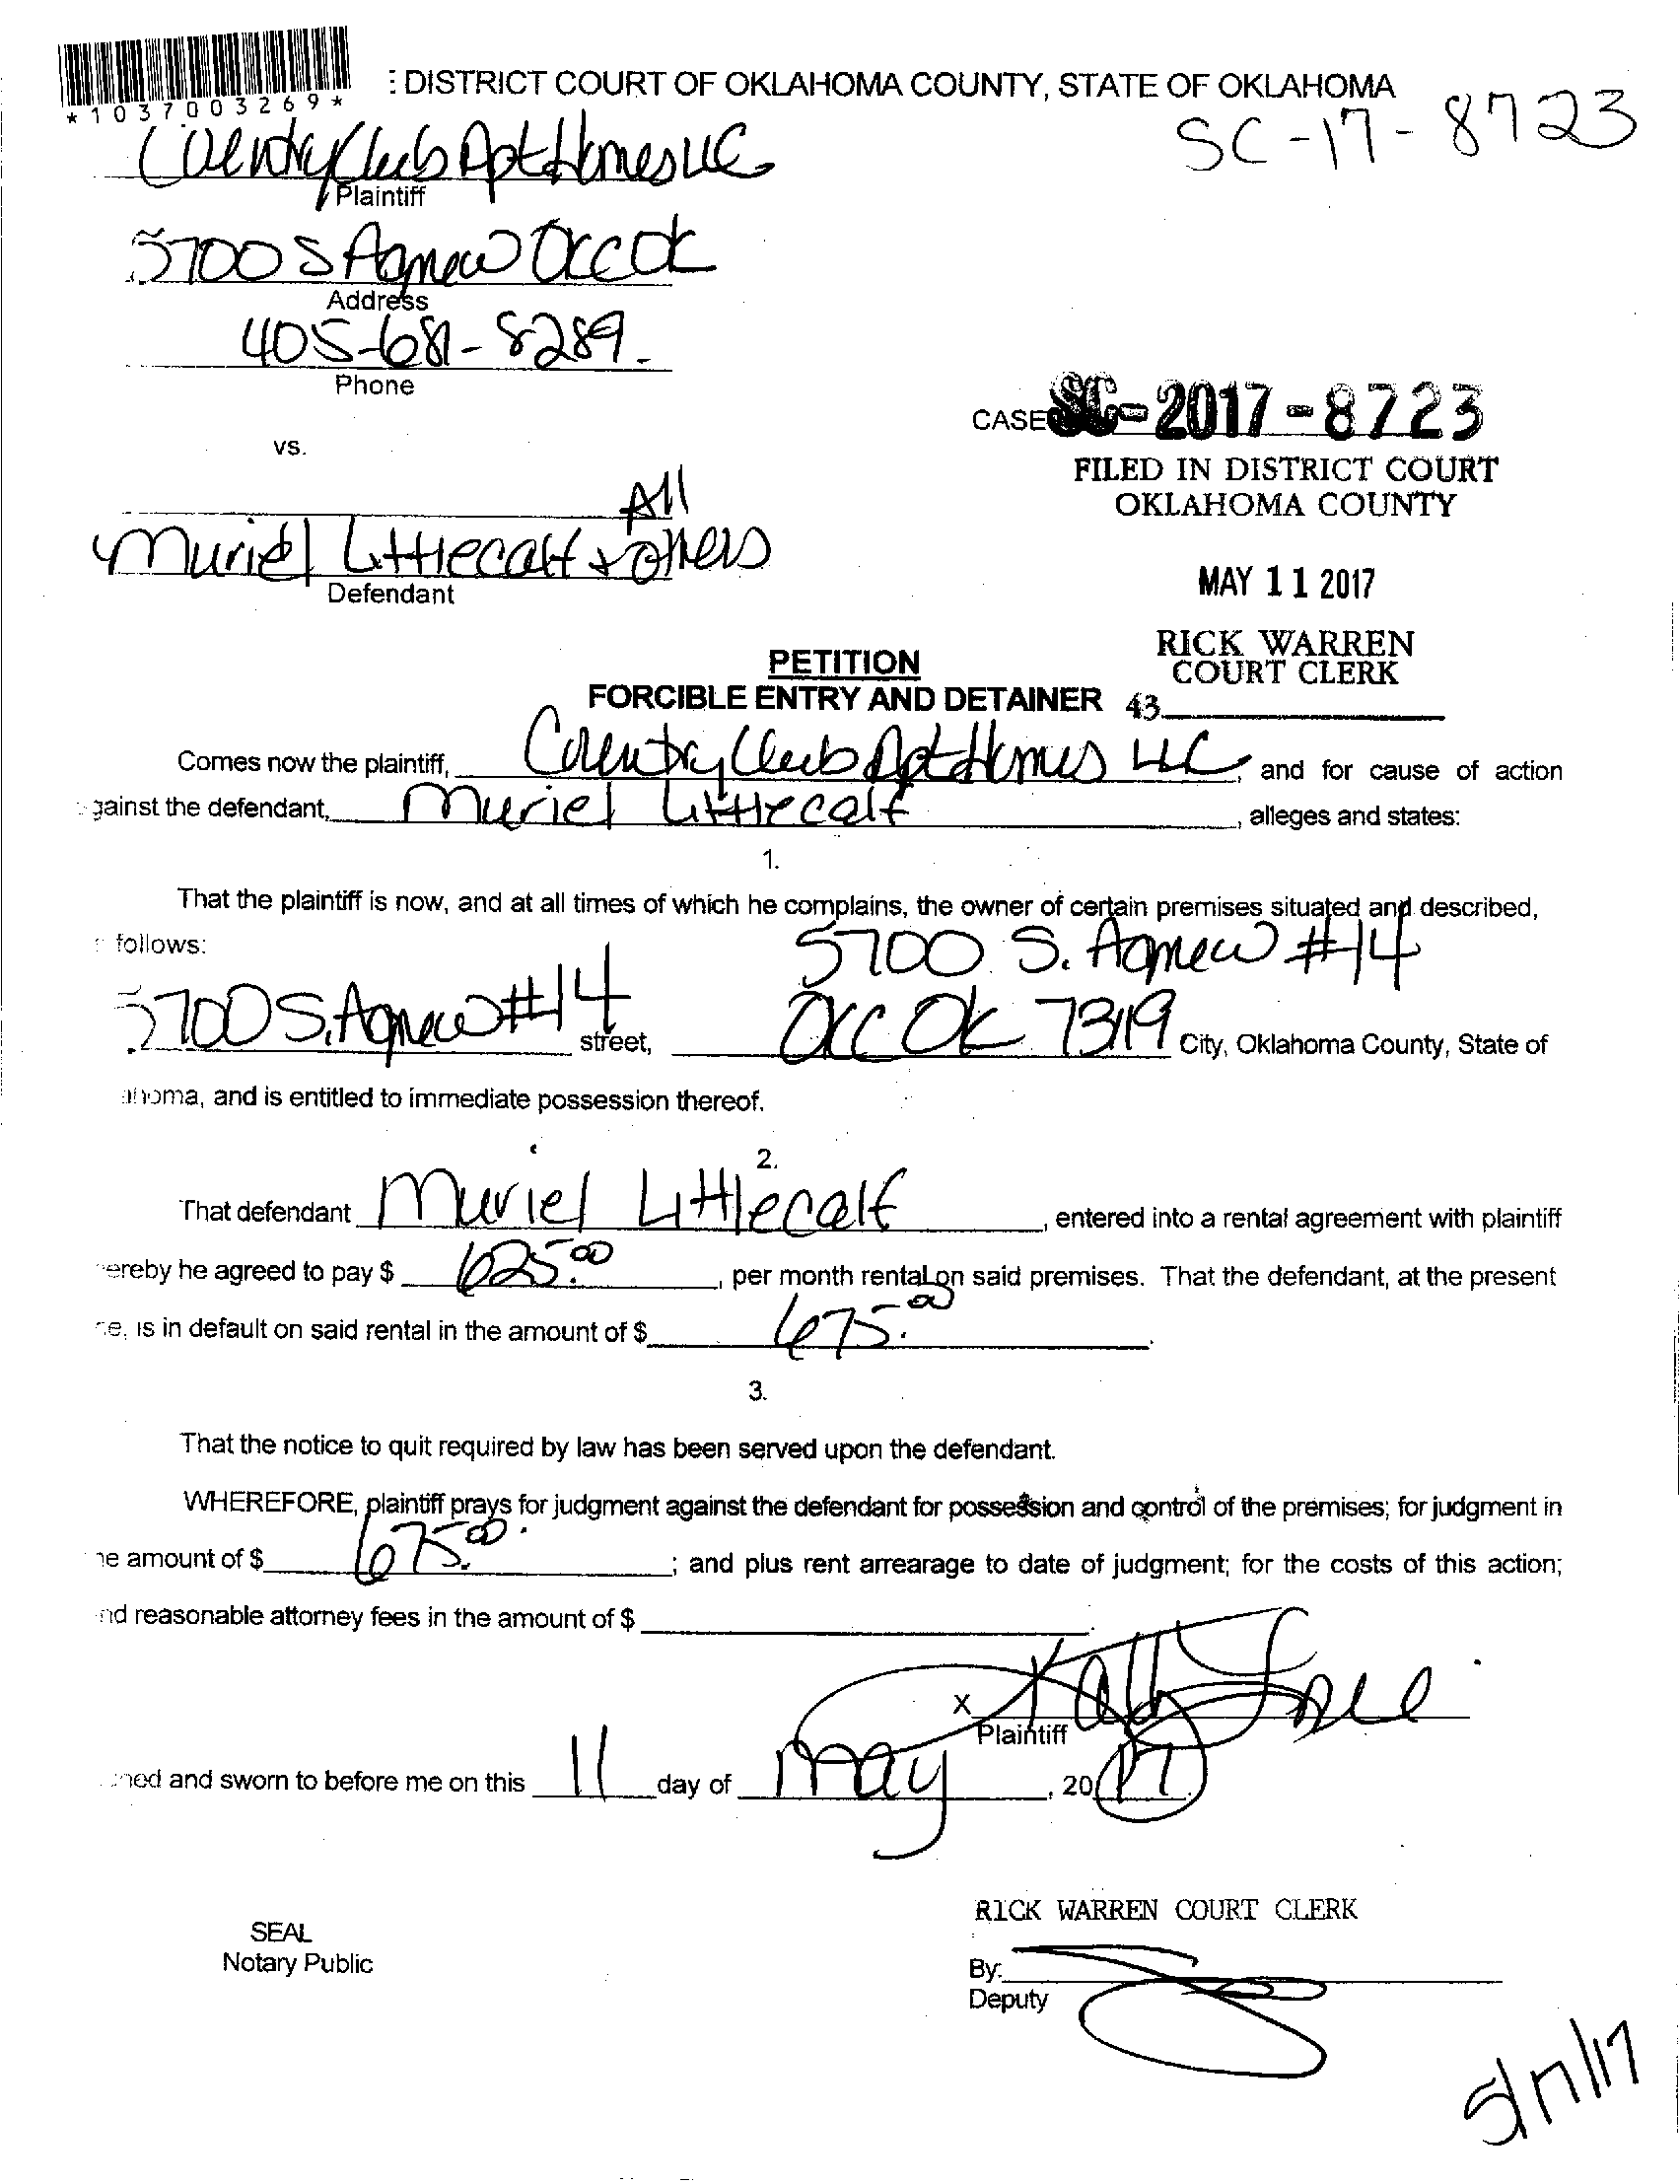 *1037003269*
: DISTRICT COURT OF OKLAHOMA COUNTY, STATE OF OKLAHOMA
SC-17-8723
Country Club Apt Homes LLC
Plaintiff
5700 S Agnew OKC OK
Address
405-681-8289
Phone
CASE SC-2017-8723
vs.
FILED IN DISTRICT COURT
OKLAHOMA COUNTY
All
Muriel Littlecalf + others
Defendant
MAY 11 2017
RICK WARREN
COURT CLERK
PETITION
FORCIBLE ENTRY AND DETAINER
43
Comes now the plaintiff, Country Club Apt Homes LLC, and for cause of action
gainst the defendant, Muriel Littlecalf, alleges and states:
1.
That the plaintiff is now, and at all times of which he complains, the owner of certain premises situated and described,
follows:
5700 S. Agnew #14
5700 S. Agnew #14 street, OKC OK 73119 City, Oklahoma County, State of
ahoma, and is entitled to immediate possession thereof.
2.
That defendant Muriel Littlecalf, entered into a rental agreement with plaintiff
ereby he agreed to pay $ 625.00, per month rental on said premises. That the defendant, at the present
e, is in default on said rental in the amount of $ 675.00.
3.
That the notice to quit required by law has been served upon the defendant.
WHEREFORE, plaintiff prays for judgment against the defendant for possession and control of the premises; for judgment in
he amount of $ 675.00; and plus rent arrearage to date of judgment; for the costs of this action;
nd reasonable attorney fees in the amount of $
X
Plaintiff
ned and sworn to before me on this 11 day of May, 2017.
RICK WARREN COURT CLERK
SEAL
Notary Public
By:
Deputy